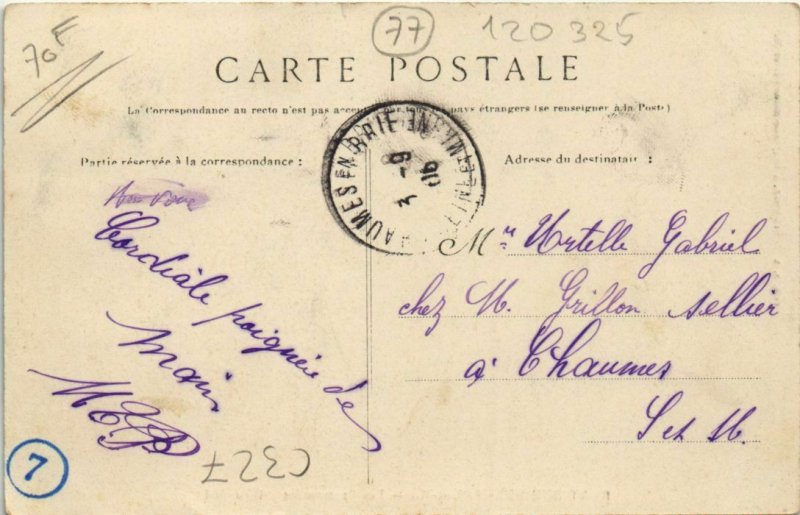 70F
77
120 325
CARTE POSTALE
La Correspondance au recto n'est pas pays étrangers (se renseigner à la Poste)
Partie réservée à la correspondance :
Adresse du destinatair :
AUMES EN BRIE
SEINE-ET-MARNE
3-9
06
Cordiale poignée de
main
Mr Urtelle Gabriel
chez M. Grillon sellier
à Chaumes
S et M
7
C327